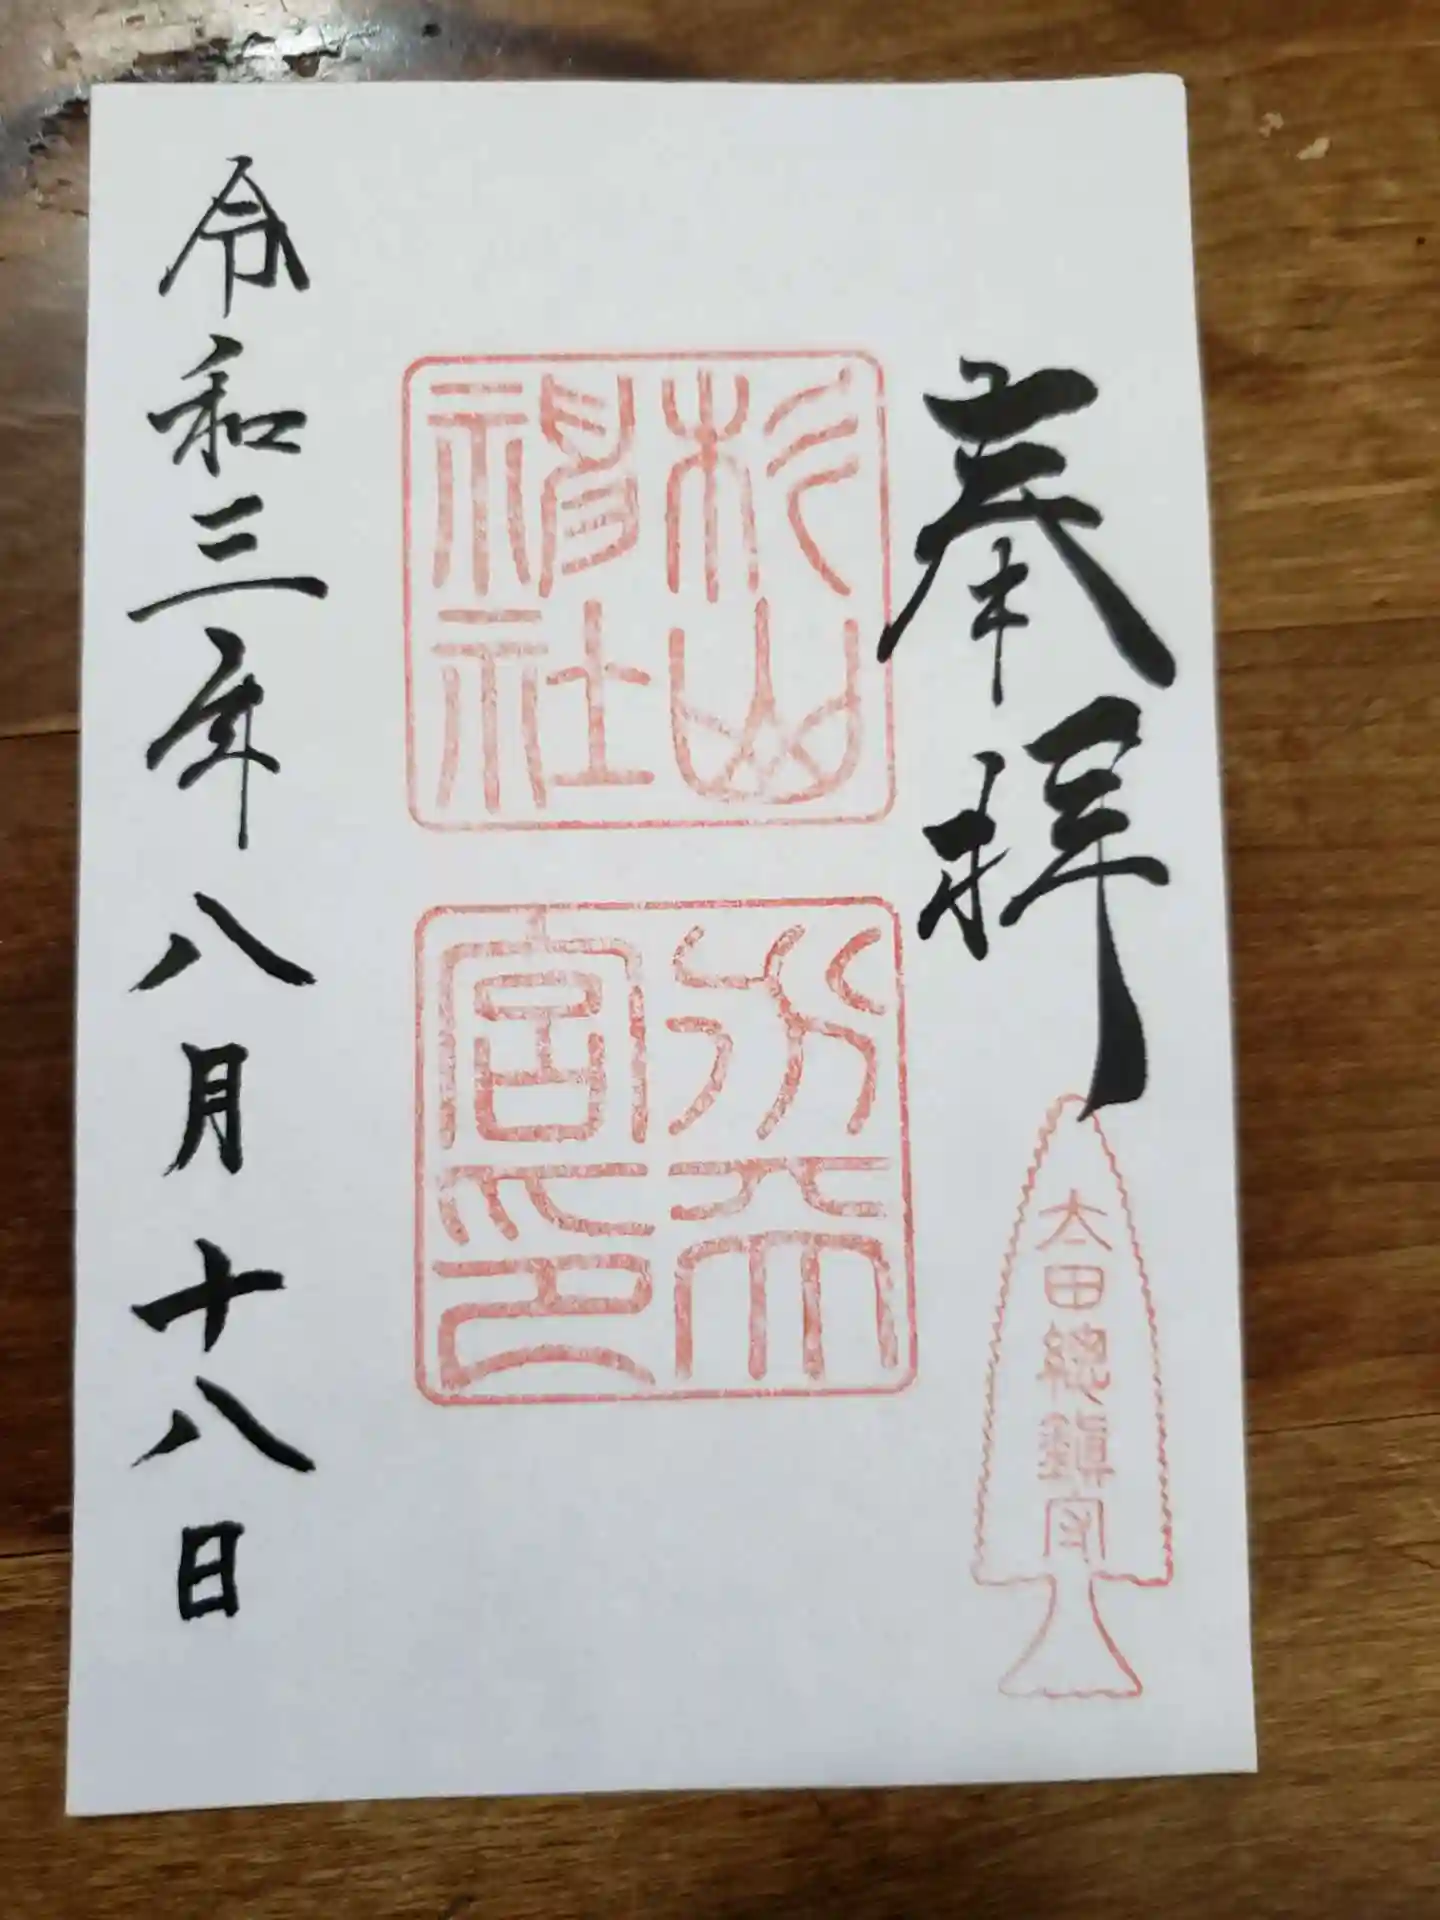 奉拝
太田總鎮守
杉山
神社
水天
宮印
令和三年八月十八日